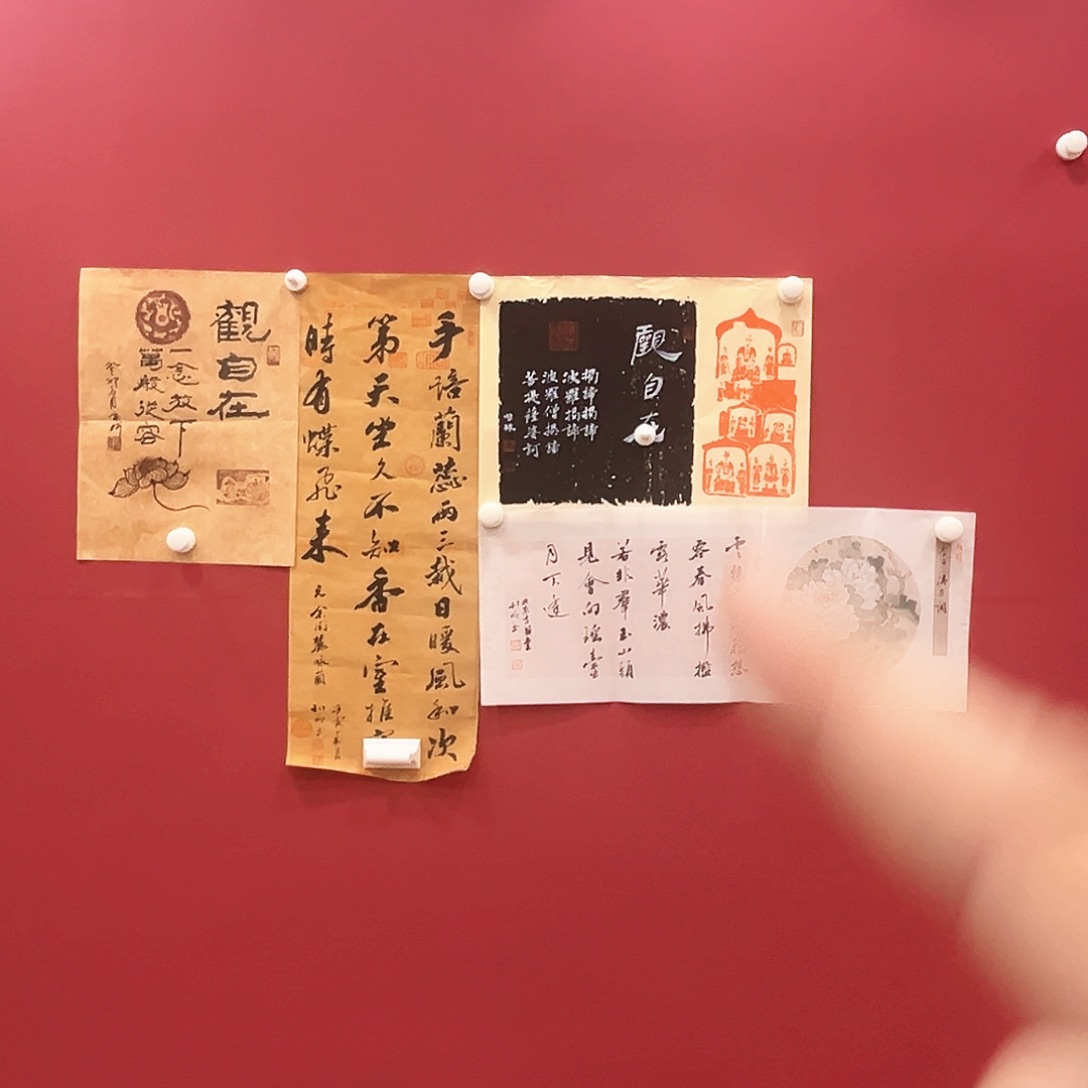 觀自在
一念放下
萬般從容
手培蘭蕊兩三栽日暖風和次
第天坐久不知香在室推
時有蝶飛来
元余同麓咏蘭
觀自在
揭諦揭諦
波羅揭諦
波羅僧揭諦
菩提薩婆訶
清平調
雲想想
容春風拂檻
露華濃
若非羣玉山頭
見會向瑶臺
月下逢